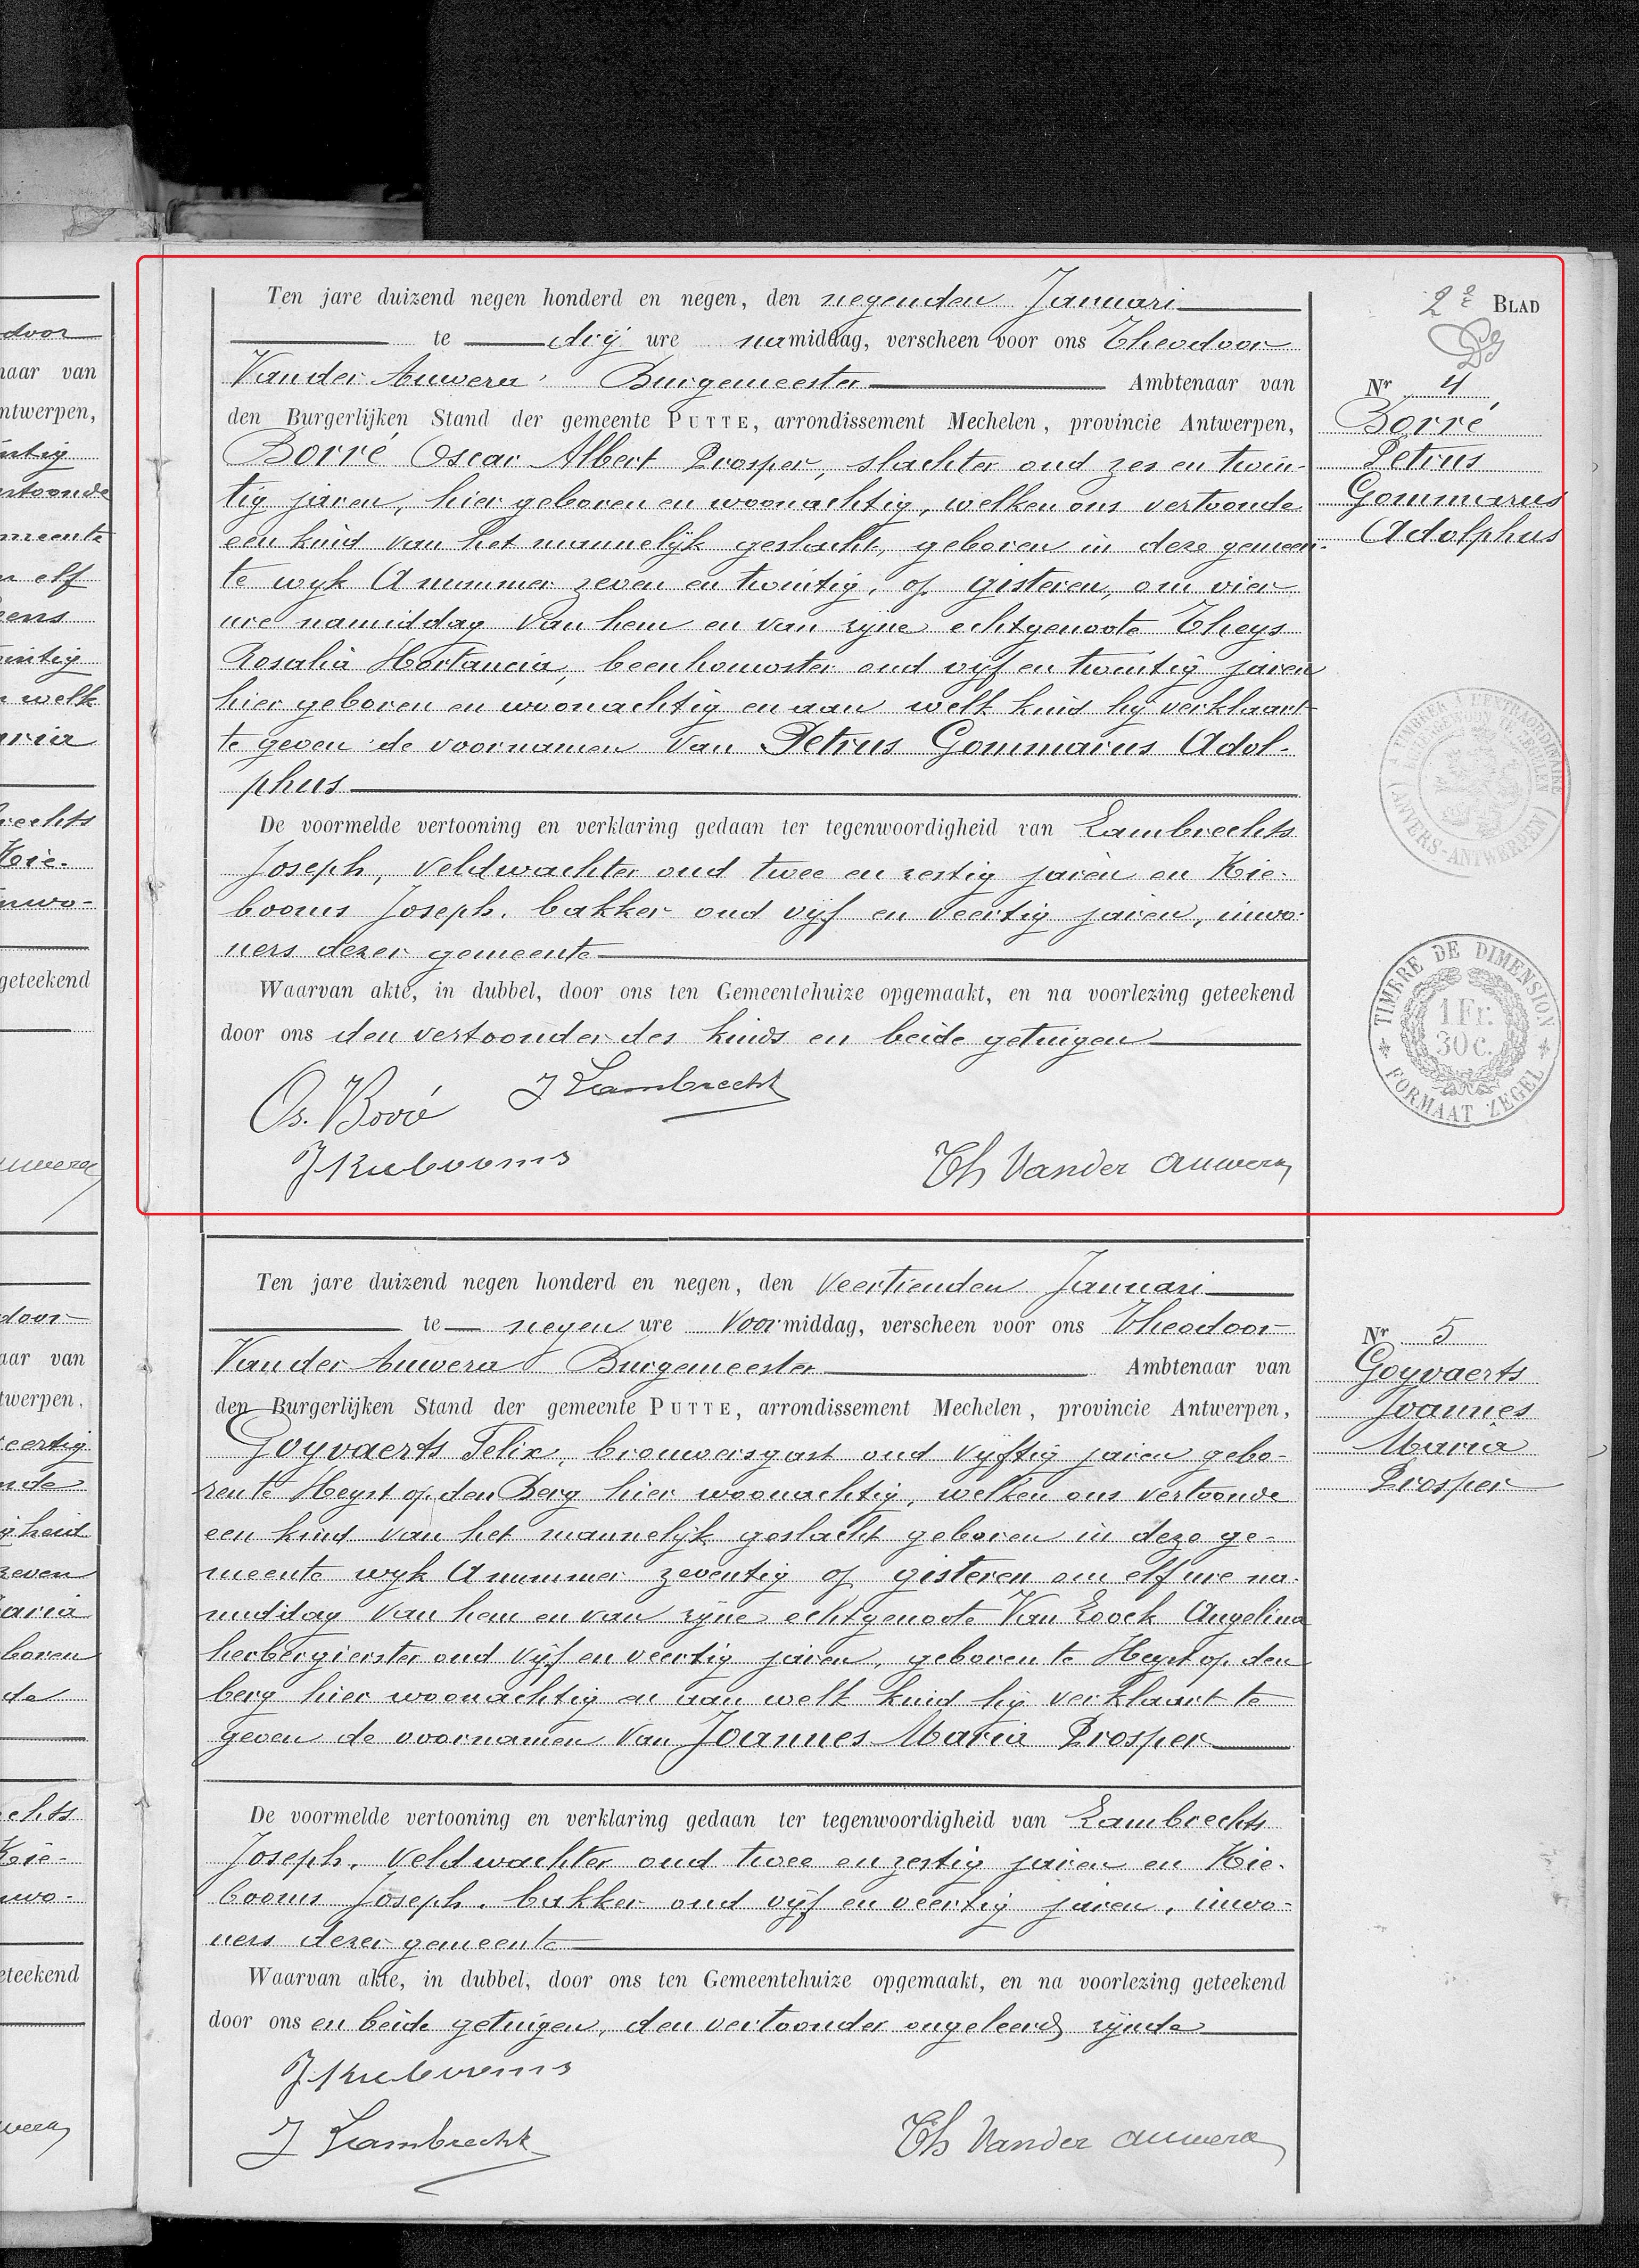 door
naar van
ntwerpen,
intig
rtoonde
meente
n elf
ens
intig
n welk
aria
rechts
Kie-
nwo-
geteekend
auwera
door
aar van
twerpen,
eertig
nde
heid
zeven
aria
boren
de
echts
Kie-
nwo-
eteekend
wera
Ten jare duizend negen honderd en negen, den negenden Januari
te drij ure namiddag, verscheen voor ons Theodoor
Van der Auwera Burgemeester Ambtenaar van
den Burgerlijken Stand der gemeente PUTTE, arrondissement Mechelen, provincie Antwerpen,
Borré Oscar Albert Prosper, slachter oud zes en twin-
tig jaren, hier geboren en woonachtig, welken ons vertoonde
een kind van het mannelijk geslacht, geboren in deze gemeen-
te wyk A nummer zeven en twintig, op gisteren, om vier
ure namiddag van hem en van zyne echtgenoote Theys
Rosalia Hortancia, beenhouwster oud vyf en twintig jaren
hier geboren en woonachtig en aan welk kind hy verklaart
te geven de voornamen van Petrus Gommarus Adol-
phus
De voormelde vertooning en verklaring gedaan ter tegenwoordigheid van Lambrechts
Joseph, veldwachter oud twee en zestig jaren en Kie-
booms Joseph, bakker oud vyf en veertig jaren, inwo-
ners dezer gemeente
Waarvan akte, in dubbel, door ons ten Gemeentehuize opgemaakt, en na voorlezing geteekend
door ons den vertoonder des kinds en beide getuigen
Os. Borré J Lambrecht
J Kiebooms Th Vander Auwera
2e BLAD
Nr 4
Borré
Petrus
Gommarus
Adolphus
TIMBRE À L'EXTRAORDINAIRE
BUITENGEWOON TE ZEGELEN
(ANVERS-ANTWERPEN)
TIMBRE DE DIMENSION
1 Fr.
30 c.
FORMAAT ZEGEL
Ten jare duizend negen honderd en negen, den veertienden Januari
te negen ure voormiddag, verscheen voor ons Theodoor
Van der Auwera Burgemeester Ambtenaar van
den Burgerlijken Stand der gemeente PUTTE, arrondissement Mechelen, provincie Antwerpen,
Goyvaerts Felix, brouwersgast oud vyftig jaren gebo-
ren te Heyst op den Berg hier woonachtig, welken ons vertoonde
een kind van het mannelijk geslacht geboren in deze ge-
meente wyk A nummer zeventig op gisteren om elf ure na-
middag van hem en van zyne echtgenoote Van Loock Angelina
herbergierster oud vyf en veertig jaren, geboren te Heyst op den
berg hier woonachtig en aan welk kind hij verklaart te
geven de voornamen van Joannes Maria Prosper
De voormelde vertooning en verklaring gedaan ter tegenwoordigheid van Lambrechts
Joseph, veldwachter oud twee en zestig jaren en Kie-
booms Joseph, bakker oud vyf en veertig jaren, inwo-
ners dezer gemeente
Waarvan akte, in dubbel, door ons ten Gemeentehuize opgemaakt, en na voorlezing geteekend
door ons en beide getuigen, den vertoonder ongeleerd zijnde
J Kiebooms
J Lambrecht Th Vander Auwera
Nr 5
Goyvaerts
Joannes
Maria
Prosper